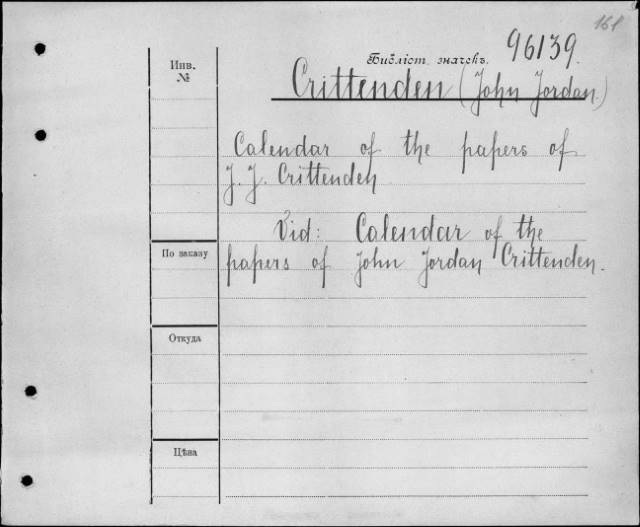 161
96139.
Инв.
№
Библіот. значекъ.
Crittenden (John Jordan.)
Calendar of the papers of
J. J. Crittenden
Vid: Calendar of the
papers of John Jordan Crittenden.
По заказу
Откуда
Цѣна